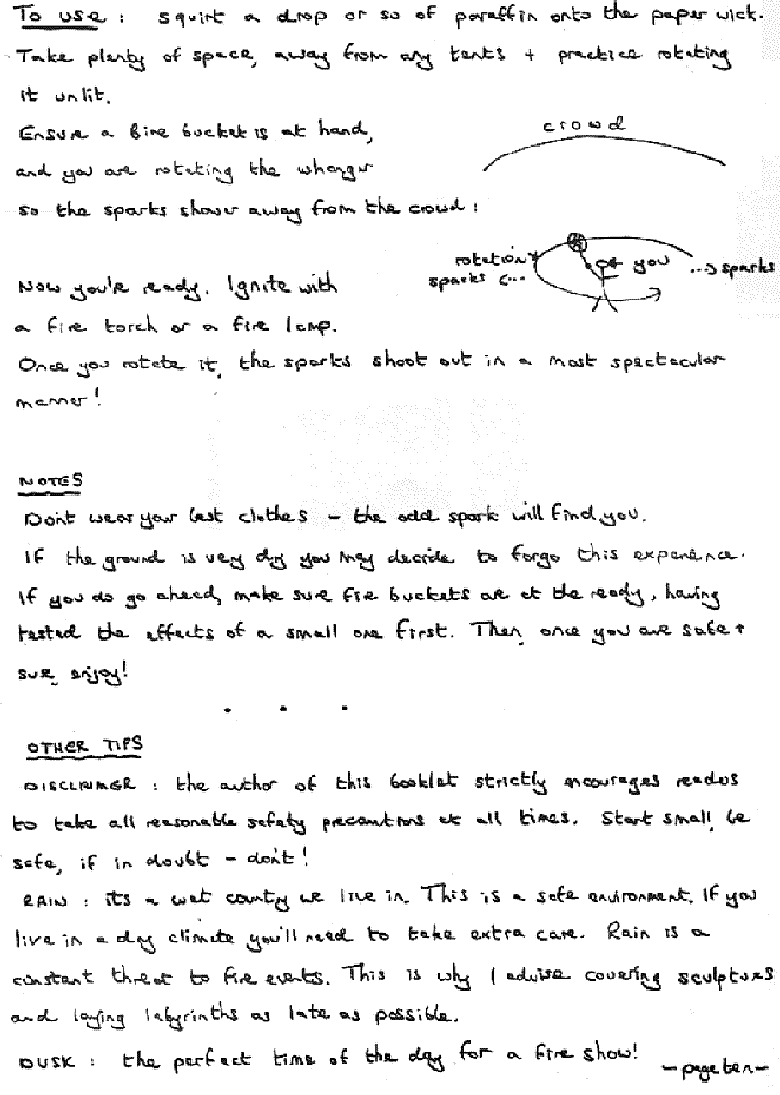 To use: squirt a drop or so of paraffin onto the paper wick.
Take plenty of space, away from any tents + practice rotating
it unlit.
Ensure a fire bucket is at hand,
and you are rotating the whanger
so the sparks shower away from the crowd:
crowd
rotation
sparks <...
you
...> sparks
Now you're ready. Ignite with
a fire torch or a fire lamp.
Once you rotate it, the sparks shoot out in a most spectacular
manner!
NOTES
Dont wear your best clothes - the odd spark will find you.
If the ground is very dry you may decide to forgo this experience.
If you do go ahead, make sure fire buckets are at the ready, having
tested the effects of a small one first. Then, once you are safe +
sure, enjoy!
. . .
OTHER TIPS
DISCLAIMER: the author of this booklet strictly encourages readers
to take all reasonable safety precautions at all times. Start small, be
safe, if in doubt - don't!
RAIN: its a wet country we live in. This is a safe environment. If you
live in a dry climate you'll need to take extra care. Rain is a
constant threat to fire events. This is why I advise covering sculptures
and laying labyrinths as late as possible.
DUSK: the perfect time of the day for a fire show!
-page ten-